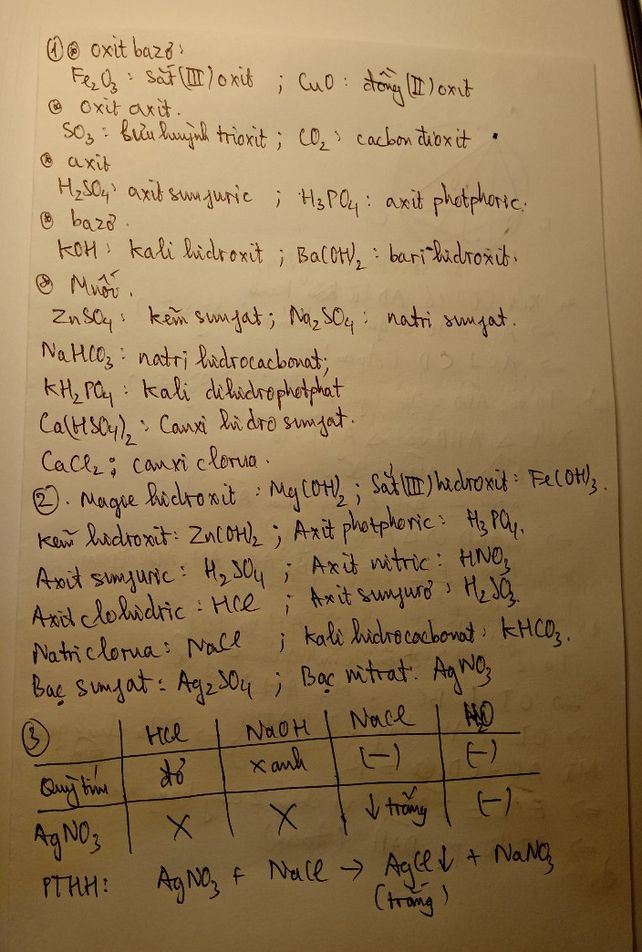 ① ⊛ oxit bazơ:
Fe₂O₃ : Sắt (III) oxit ; CuO : đồng (II) oxit
⊛ oxit axit.
SO₃ : lưu huỳnh trioxit ; CO₂ : cacbon đioxit
⊛ axit
H₂SO₄ : axit sunfuric ; H₃PO₄ : axit photphoric.
⊛ bazơ.
KOH : kali hidroxit ; Ba(OH)₂ : bari hidroxit.
⊛ Muối.
ZnSO₄ : kẽm sunfat ; Na₂SO₄ : natri sunfat.
NaHCO₃ : natri hidrocacbonat;
KH₂PO₄ : Kali dihidrophotphat
Ca(HSO₄)₂ : Canxi hidro sunfat.
CaCl₂ ; canxi clorua.
②. Magie hidroxit : Mg(OH)₂ ; Sắt (III) hidroxit : Fe(OH)₃.
Kẽm hidroxit : Zn(OH)₂ ; Axit photphoric : H₃PO₄.
Axit sunfuric : H₂SO₄ ; Axit nitric : HNO₃
Axit clohidric : HCl ; Axit sunfurơ : H₂SO₃.
Natri clorua : NaCl ; Kali hidrocacbonat : KHCO₃.
Bạc sunfat : Ag₂SO₄ ; Bạc nitrat : AgNO₃
③ HCl NaOH NaCl H₂O
Quỳ tím đỏ xanh (−) (−)
AgNO₃ X X ↓ trắng (−)
PTHH: AgNO₃ + NaCl → AgCl↓ + NaNO₃
(trắng)